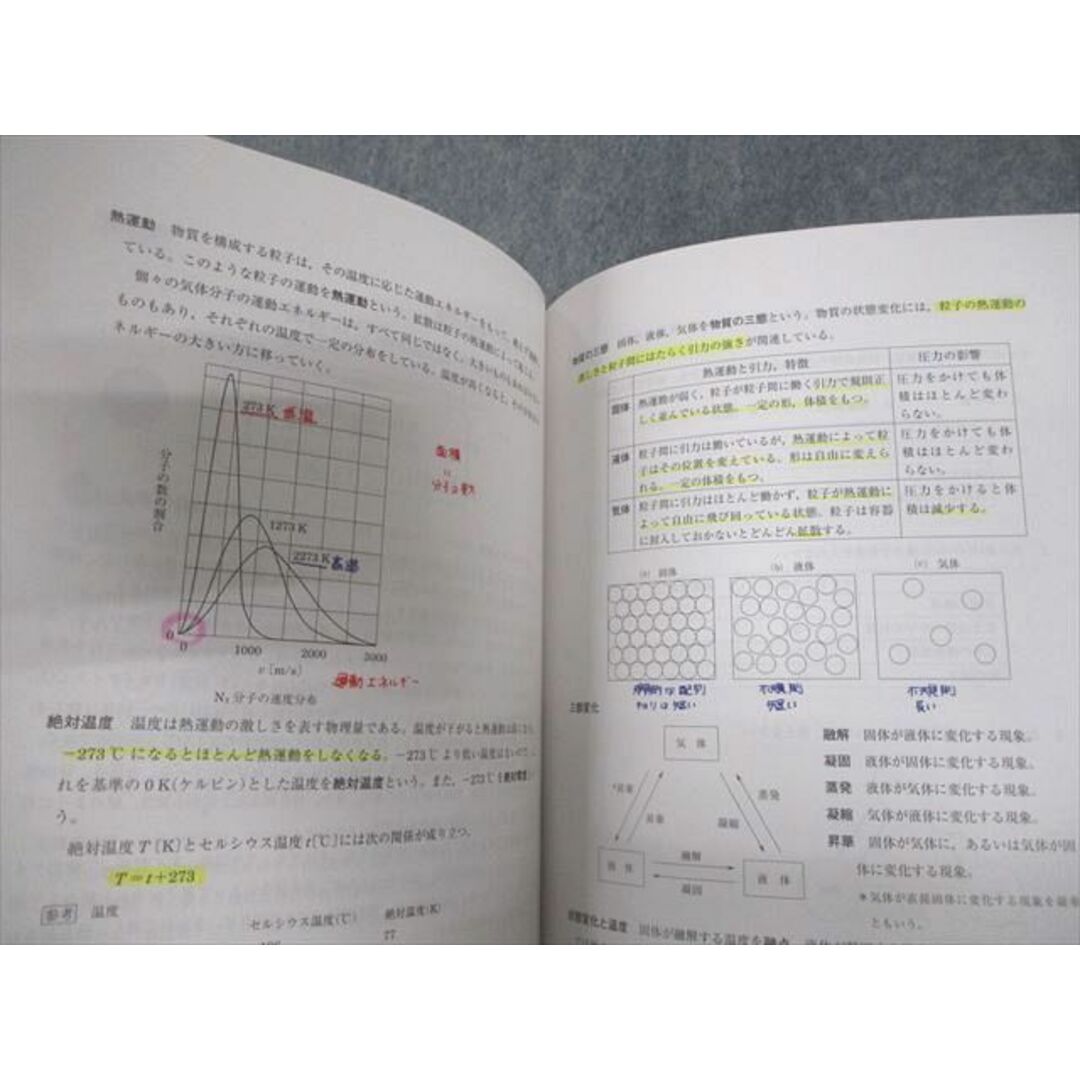 熱運動 物質を構成する粒子は，その温度に応じた運動エネルギーをもって，
ている。このような粒子の運動を熱運動という。拡散は粒子の熱運動によって
個々の気体分子の運動エネルギーは，すべて同じではなく，大きいものも
ものもあり，それぞれの温度で一定の分布をしている。温度が高くなると，
ネルギーの大きい方に移っていく。
分子の数の割合
273 K
1273 K
2273 K
面積
0
0 1000 2000 3000
v〔m/s〕
運動エネルギー
N₂分子の速度分布
絶対温度 温度は熱運動の激しさを表す物理量である。温度が下がると熱運動は
−273℃になるとほとんど熱運動をしなくなる。−273℃より低い温度はないので，
れを基準の0K(ケルビン)とした温度を絶対温度という。また，−273℃を絶対零度
う。
絶対温度T〔K〕とセルシウス温度t〔℃〕には次の関係が成り立つ。
T＝t＋273
参考 温度
セルシウス温度(℃) 絶対温度(K)
77
物質の三態 固体，液体，気体を物質の三態という。物質の状態変化には，粒子の熱運動の
激しさと粒子間にはたらく引力の強さが関連している。
熱運動と引力，特徴 圧力の影響
固体 熱運動が弱く，粒子が粒子間に働く引力で規則正しく並んでいる状態。一定の形，体積をもつ。 圧力をかけても体積はほとんど変わらない。
液体 粒子間に引力は働いているが，熱運動によって粒子はその位置を変えている。形は自由に変えられる。一定の体積をもつ。 圧力をかけても体積はほとんど変わらない。
気体 粒子間に引力はほとんど働かず，粒子が熱運動によって自由に飛び回っている状態。粒子は容器に封入しておかないとどんどん拡散する。 圧力をかけると体積は減少する。
(a) 固体 (b) 液体 (c) 気体
不規則 不規則
短い 長い
三態変化
気 体
*昇華
昇華
凝縮
蒸発
固 体
融解
凝固
液 体
融解 固体が液体に変化する現象。
凝固 液体が固体に変化する現象。
蒸発 液体が気体に変化する現象。
凝縮 気体が液体に変化する現象。
昇華 固体が気体に，あるいは気体が固
体に変化する現象。
＊気体が直接固体に変化する現象を凝華
ともいう。
状態変化と温度 固体が融解する温度を融点，